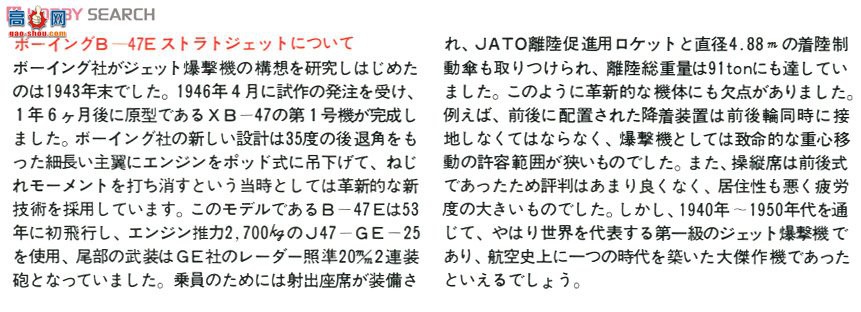 HOBBY SEARCH
高网
ボーイングB－47E ストラトジェットについて
ボーイング社がジェット爆撃機の構想を研究しはじめた
のは1943年末でした。1946年4月に試作の発注を受け、
1年6ヶ月後に原型であるXB－47の第1号機が完成し
ました。ボーイング社の新しい設計は35度の後退角をも
った細長い主翼にエンジンをポッド式に吊下げて、ねじ
れモーメントを打ち消すという当時としては革新的な新
技術を採用しています。このモデルであるB－47Eは53
年に初飛行し、エンジン推力2,700㎏のJ47－GE－25
を使用、尾部の武装はGE社のレーダー照準20㎜2連装
砲となっていました。乗員のためには射出座席が装備さ
れ、JATO離陸促進用ロケットと直径4.88mの着陸制
動傘も取りつけられ、離陸総重量は91tonにも達してい
ました。このように革新的な機体にも欠点がありました。
例えば、前後に配置された降着装置は前後輪同時に接
地しなくてはならなく、爆撃機としては致命的な重心移
動の許容範囲が狭いものでした。また、操縦席は前後式
であったため評判はあまり良くなく、居住性も悪く疲労
度の大きいものでした。しかし、1940年～1950年代を通
じて、やはり世界を代表する第一級のジェット爆撃機で
あり、航空史上に一つの時代を築いた大傑作機であった
といえるでしょう。